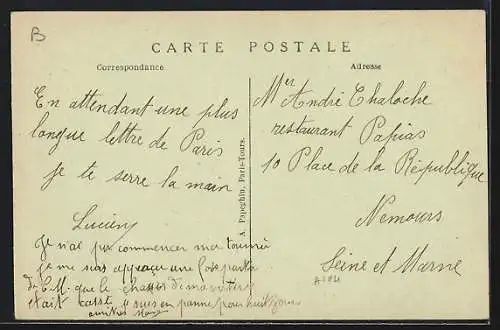 B
CARTE POSTALE
Correspondance
Adresse
En attendant une plus
longue lettre de Paris
je te serre la main
Lucien
Je n'ai pu commencer mer tournée
je me suis apperçu une fois parti
de C.M. que le chassis de ma voiture
était cassé je suis en panne pour huit jours
amitiés
A. Papeghin, Paris-Tours.
Mer André Chaloche
restaurant Papias
10 Place de la République
Nemours
Seine et Marne